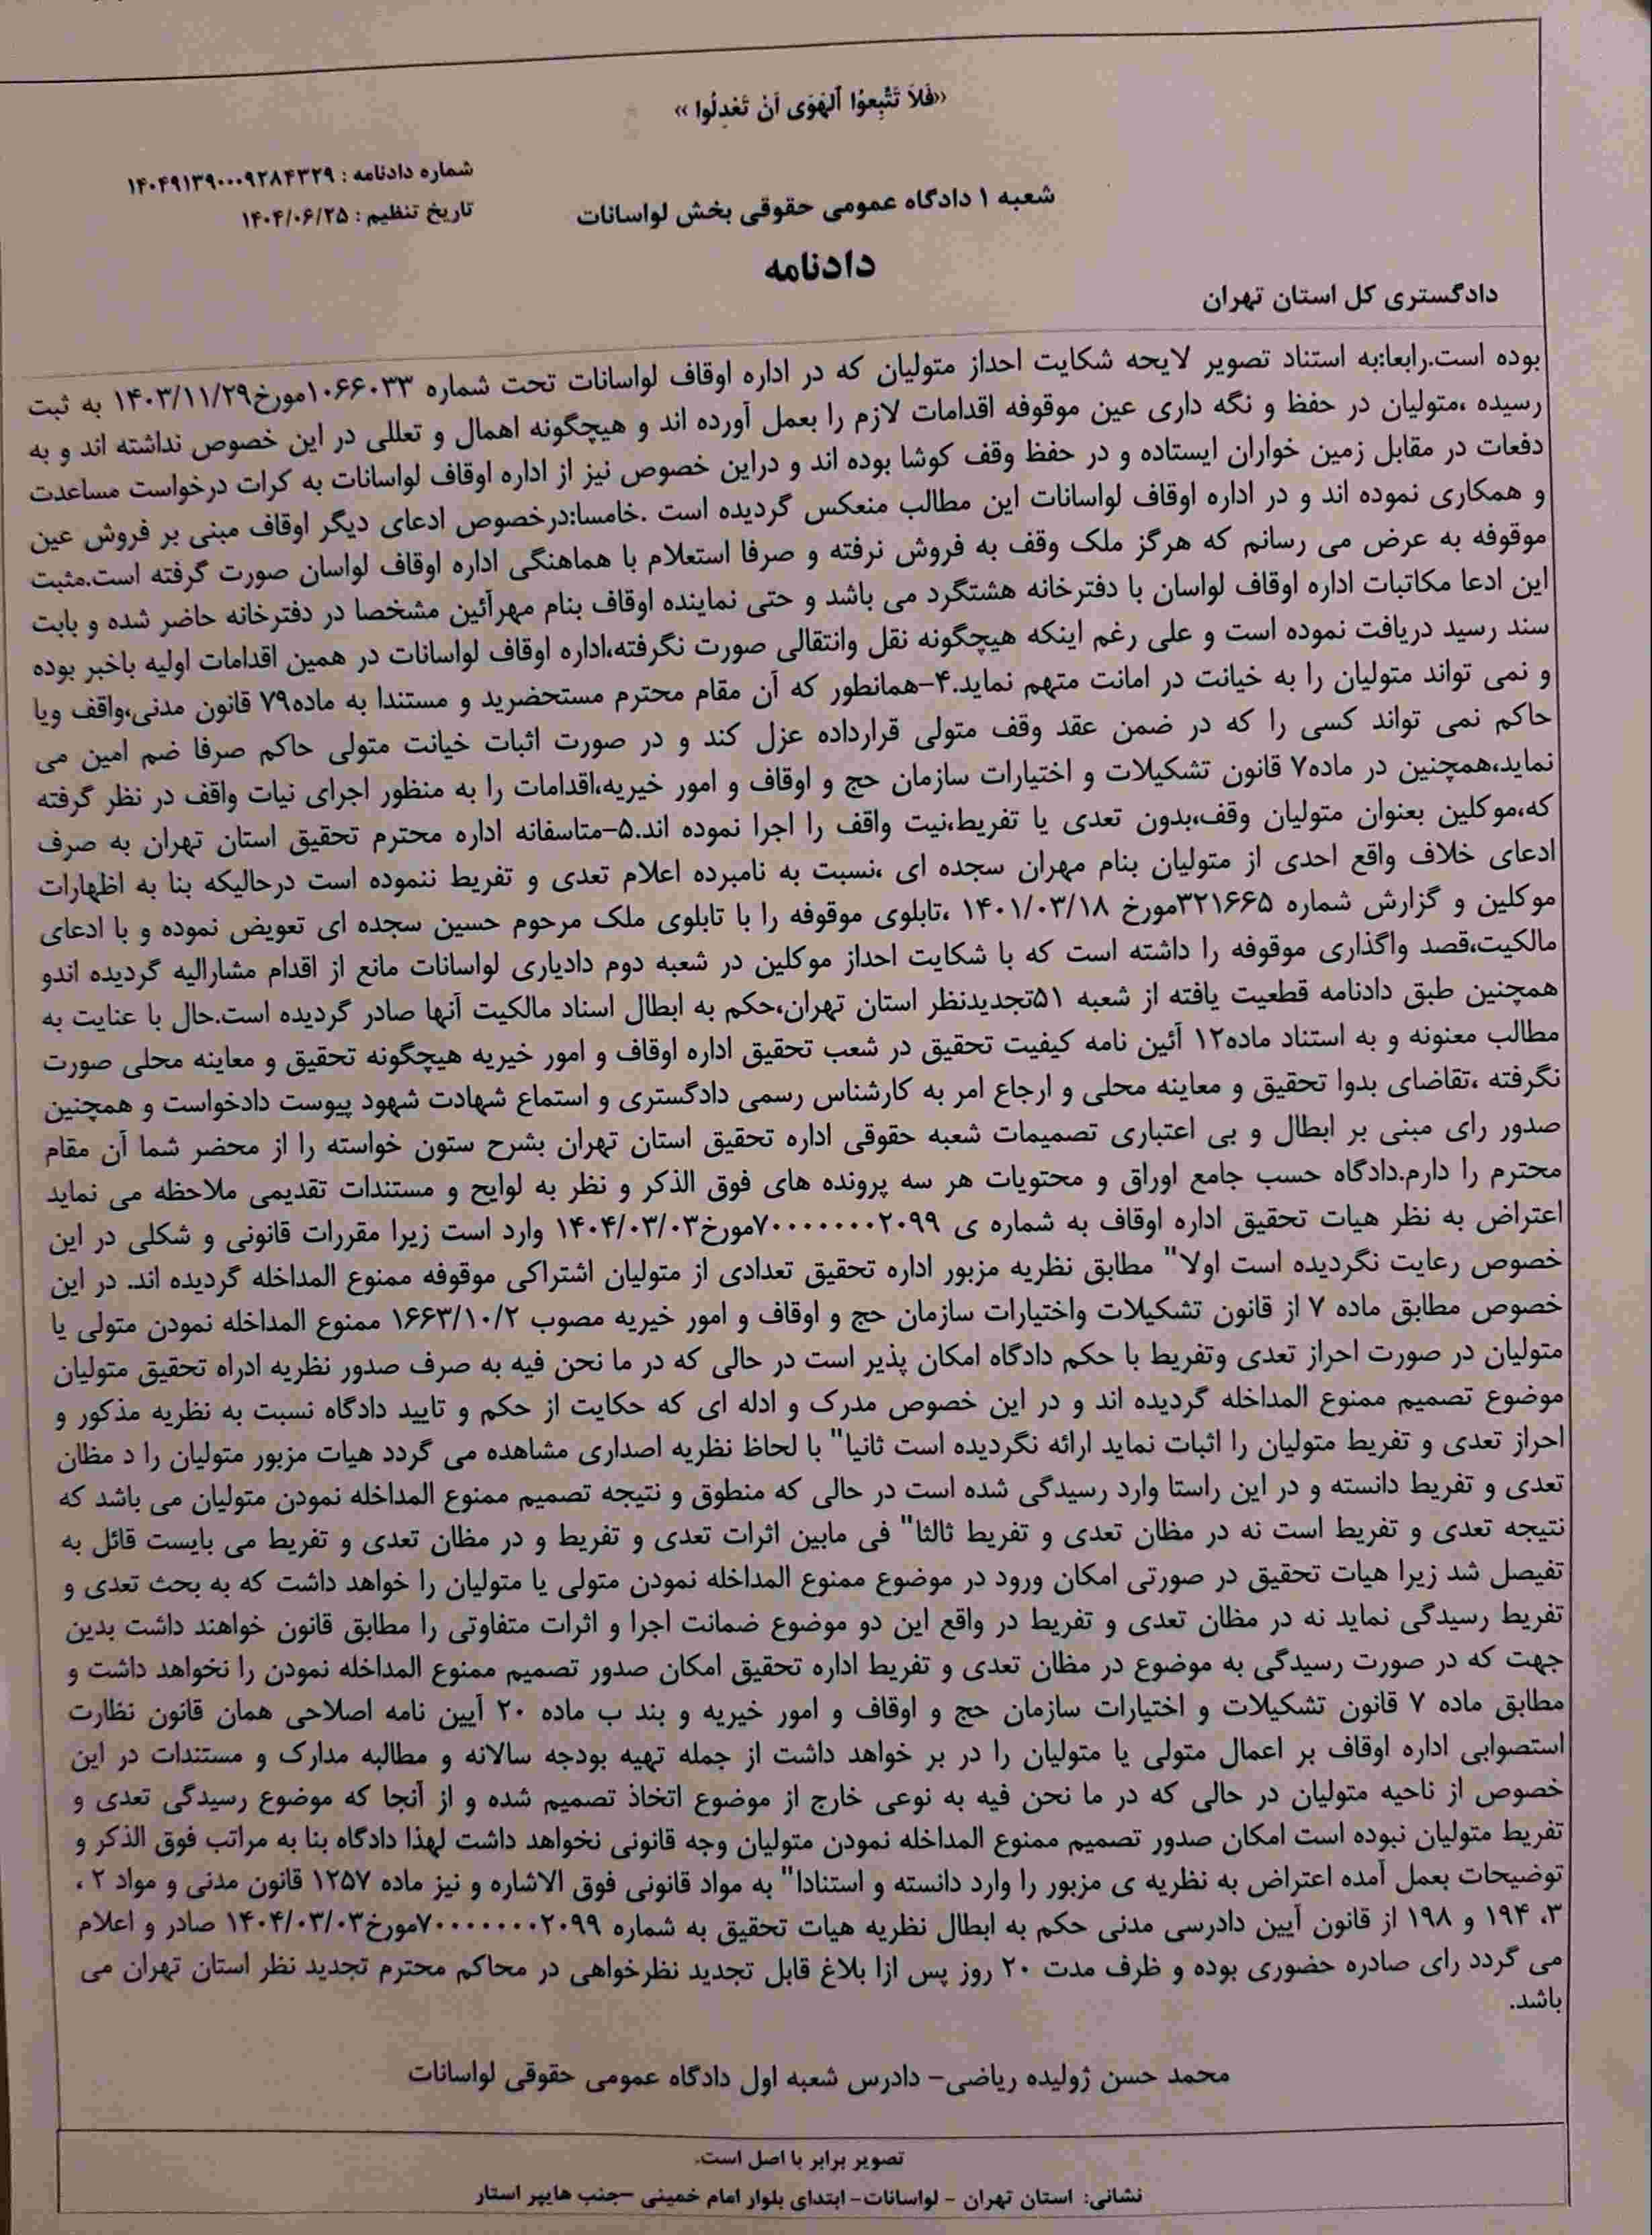 «فَلاَ تَتَّبِعُوا ٱلْهَوَى أَنْ تَعْدِلُوا »
شماره دادنامه : ۱۴۰۴۹۱۳۹۰۰۰۹۲۸۴۳۲۹
شعبه ۱ دادگاه عمومی حقوقی بخش لواسانات
تاریخ تنظیم : ۱۴۰۴/۰۶/۲۵
دادنامه
دادگستری کل استان تهران
بوده است.رابعا:به استناد تصویر لایحه شکایت احداز متولیان که در اداره اوقاف لواسانات تحت شماره ۱۰۶۶۰۳۳مورخ۱۴۰۳/۱۱/۲۹ به ثبت
رسیده ،متولیان در حفظ و نگه داری عین موقوفه اقدامات لازم را بعمل آورده اند و هیچگونه اهمال و تعللی در این خصوص نداشته اند و به
دفعات در مقابل زمین خواران ایستاده و در حفظ وقف کوشا بوده اند و دراین خصوص نیز از اداره اوقاف لواسانات به کرات درخواست مساعدت
و همکاری نموده اند و در اداره اوقاف لواسانات این مطالب منعکس گردیده است .خامسا:درخصوص ادعای دیگر اوقاف مبنی بر فروش عین
موقوفه به عرض می رسانم که هرگز ملک وقف به فروش نرفته و صرفا استعلام با هماهنگی اداره اوقاف لواسان صورت گرفته است.مثبت
این ادعا مکاتبات اداره اوقاف لواسان با دفترخانه هشتگرد می باشد و حتی نماینده اوقاف بنام مهرآئین مشخصا در دفترخانه حاضر شده و بابت
سند رسید دریافت نموده است و علی رغم اینکه هیچگونه نقل وانتقالی صورت نگرفته،اداره اوقاف لواسانات در همین اقدامات اولیه باخبر بوده
و نمی تواند متولیان را به خیانت در امانت متهم نماید.۴-همانطور که آن مقام محترم مستحضرید و مستندا به ماده۷۹ قانون مدنی،واقف ویا
حاکم نمی تواند کسی را که در ضمن عقد وقف متولی قرارداده عزل کند و در صورت اثبات خیانت متولی حاکم صرفا ضم امین می
نماید،همچنین در ماده۷ قانون تشکیلات و اختیارات سازمان حج و اوقاف و امور خیریه،اقدامات را به منظور اجرای نیات واقف در نظر گرفته
که،موکلین بعنوان متولیان وقف،بدون تعدی یا تفریط،نیت واقف را اجرا نموده اند.۵-متاسفانه اداره محترم تحقیق استان تهران به صرف
ادعای خلاف واقع احدی از متولیان بنام مهران سجده ای ،نسبت به نامبرده اعلام تعدی و تفریط ننموده است درحالیکه بنا به اظهارات
موکلین و گزارش شماره ۳۲۱۶۶۵مورخ ۱۴۰۱/۰۳/۱۸ ،تابلوی موقوفه را با تابلوی ملک مرحوم حسین سجده ای تعویض نموده و با ادعای
مالکیت،قصد واگذاری موقوفه را داشته است که با شکایت احداز موکلین در شعبه دوم دادیاری لواسانات مانع از اقدام مشارالیه گردیده اندو
همچنین طبق دادنامه قطعیت یافته از شعبه ۵۱تجدیدنظر استان تهران،حکم به ابطال اسناد مالکیت آنها صادر گردیده است.حال با عنایت به
مطالب معنونه و به استناد ماده۱۲ آئین نامه کیفیت تحقیق در شعب تحقیق اداره اوقاف و امور خیریه هیچگونه تحقیق و معاینه محلی صورت
نگرفته ،تقاضای بدوا تحقیق و معاینه محلی و ارجاع امر به کارشناس رسمی دادگستری و استماع شهادت شهود پیوست دادخواست و همچنین
صدور رای مبنی بر ابطال و بی اعتباری تصمیمات شعبه حقوقی اداره تحقیق استان تهران بشرح ستون خواسته را از محضر شما آن مقام
محترم را دارم.دادگاه حسب جامع اوراق و محتویات هر سه پرونده های فوق الذکر و نظر به لوایح و مستندات تقدیمی ملاحظه می نماید
اعتراض به نظر هیات تحقیق اداره اوقاف به شماره ی ۷۰۰۰۰۰۰۰۲۰۹۹مورخ۱۴۰۴/۰۳/۰۳ وارد است زیرا مقررات قانونی و شکلی در این
خصوص رعایت نگردیده است اولا" مطابق نظریه مزبور اداره تحقیق تعدادی از متولیان اشتراکی موقوفه ممنوع المداخله گردیده اند. در این
خصوص مطابق ماده ۷ از قانون تشکیلات واختیارات سازمان حج و اوقاف و امور خیریه مصوب ۱۶۶۳/۱۰/۲ ممنوع المداخله نمودن متولی یا
متولیان در صورت احراز تعدی وتفریط با حکم دادگاه امکان پذیر است در حالی که در ما نحن فیه به صرف صدور نظریه ادراه تحقیق متولیان
موضوع تصمیم ممنوع المداخله گردیده اند و در این خصوص مدرک و ادله ای که حکایت از حکم و تایید دادگاه نسبت به نظریه مذکور و
احراز تعدی و تفریط متولیان را اثبات نماید ارائه نگردیده است ثانیا" با لحاظ نظریه اصداری مشاهده می گردد هیات مزبور متولیان را د مظان
تعدی و تفریط دانسته و در این راستا وارد رسیدگی شده است در حالی که منطوق و نتیجه تصمیم ممنوع المداخله نمودن متولیان می باشد که
نتیجه تعدی و تفریط است نه در مظان تعدی و تفریط ثالثا" فی مابین اثرات تعدی و تفریط و در مظان تعدی و تفریط می بایست قائل به
تفیصل شد زیرا هیات تحقیق در صورتی امکان ورود در موضوع ممنوع المداخله نمودن متولی یا متولیان را خواهد داشت که به بحث تعدی و
تفریط رسیدگی نماید نه در مظان تعدی و تفریط در واقع این دو موضوع ضمانت اجرا و اثرات متفاوتی را مطابق قانون خواهند داشت بدین
جهت که در صورت رسیدگی به موضوع در مظان تعدی و تفریط اداره تحقیق امکان صدور تصمیم ممنوع المداخله نمودن را نخواهد داشت و
مطابق ماده ۷ قانون تشکیلات و اختیارات سازمان حج و اوقاف و امور خیریه و بند ب ماده ۲۰ آیین نامه اصلاحی همان قانون نظارت
استصوابی اداره اوقاف بر اعمال متولی یا متولیان را در بر خواهد داشت از جمله تهیه بودجه سالانه و مطالبه مدارک و مستندات در این
خصوص از ناحیه متولیان در حالی که در ما نحن فیه به نوعی خارج از موضوع اتخاذ تصمیم شده و از آنجا که موضوع رسیدگی تعدی و
تفریط متولیان نبوده است امکان صدور تصمیم ممنوع المداخله نمودن متولیان وجه قانونی نخواهد داشت لهذا دادگاه بنا به مراتب فوق الذکر و
توضیحات بعمل آمده اعتراض به نظریه ی مزبور را وارد دانسته و استنادا" به مواد قانونی فوق الاشاره و نیز ماده ۱۲۵۷ قانون مدنی و مواد ۲ ،
۳، ۱۹۴ و ۱۹۸ از قانون آیین دادرسی مدنی حکم به ابطال نظریه هیات تحقیق به شماره ۷۰۰۰۰۰۰۰۲۰۹۹مورخ۱۴۰۴/۰۳/۰۳ صادر و اعلام
می گردد رای صادره حضوری بوده و ظرف مدت ۲۰ روز پس ازا بلاغ قابل تجدید نظرخواهی در محاکم محترم تجدید نظر استان تهران می
باشد.
محمد حسن ژولیده ریاضی- دادرس شعبه اول دادگاه عمومی حقوقی لواسانات
تصویر برابر با اصل است.
نشانی: استان تهران - لواسانات- ابتدای بلوار امام خمینی -جنب هایپر استار